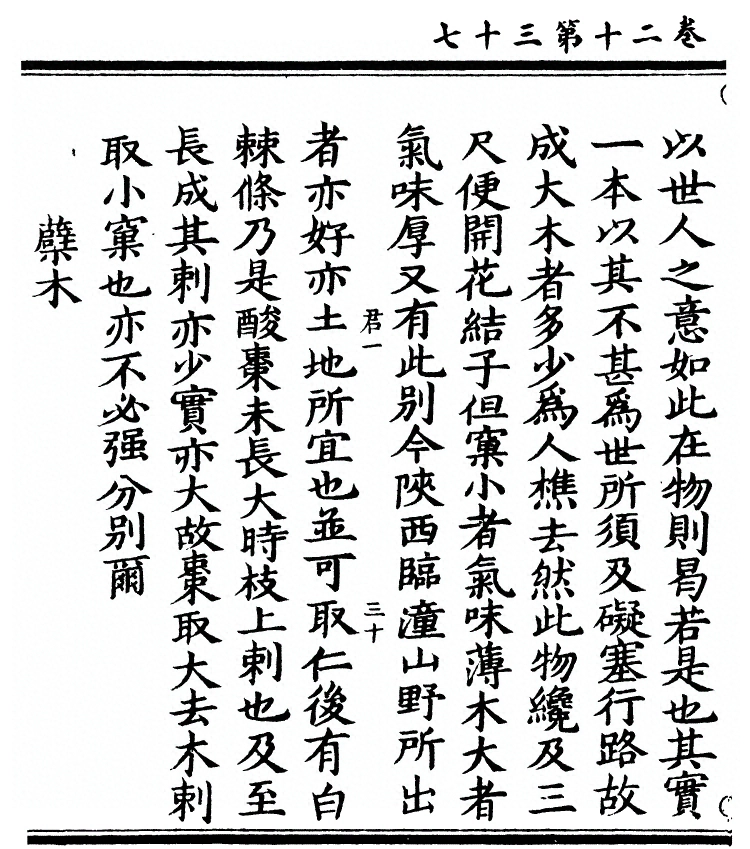 卷二十第三十七
以世人之意如此在物則曷若是也其實
一本以其不甚爲世所須及礙塞行路故
成大木者多少爲人樵去然此物纔及三
尺便開花結子但窠小者氣味薄木大者
氣味厚又有此别今陝西臨潼山野所出
君一 三十
者亦好亦土地所宜也並可取仁後有白
棘條乃是酸棗未長大時枝上刺也及至
長成其刺亦少實亦大故棗取大去木刺
取小窠也亦不必强分别爾
蘗木